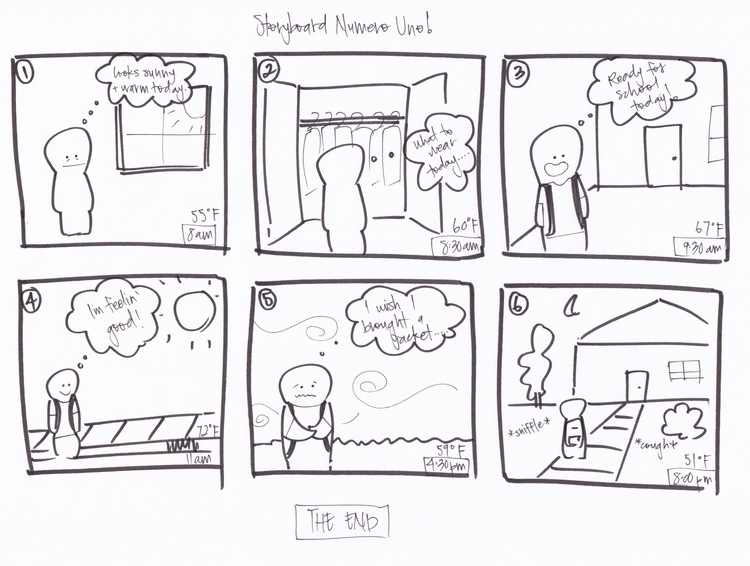 Storyboard Numero Uno!
1
looks sunny
+ warm today..
55°F
8am
2
what to
wear
today....
60°F
8:30am
3
Ready for
school
today!
67°F
9:30am
4
I'm feelin'
good!
72°F
11am
5
I wish I
brought a
jacket....
59°F
4:30pm
6
*sniffle*
*cough*
51°F
8:00pm
THE END